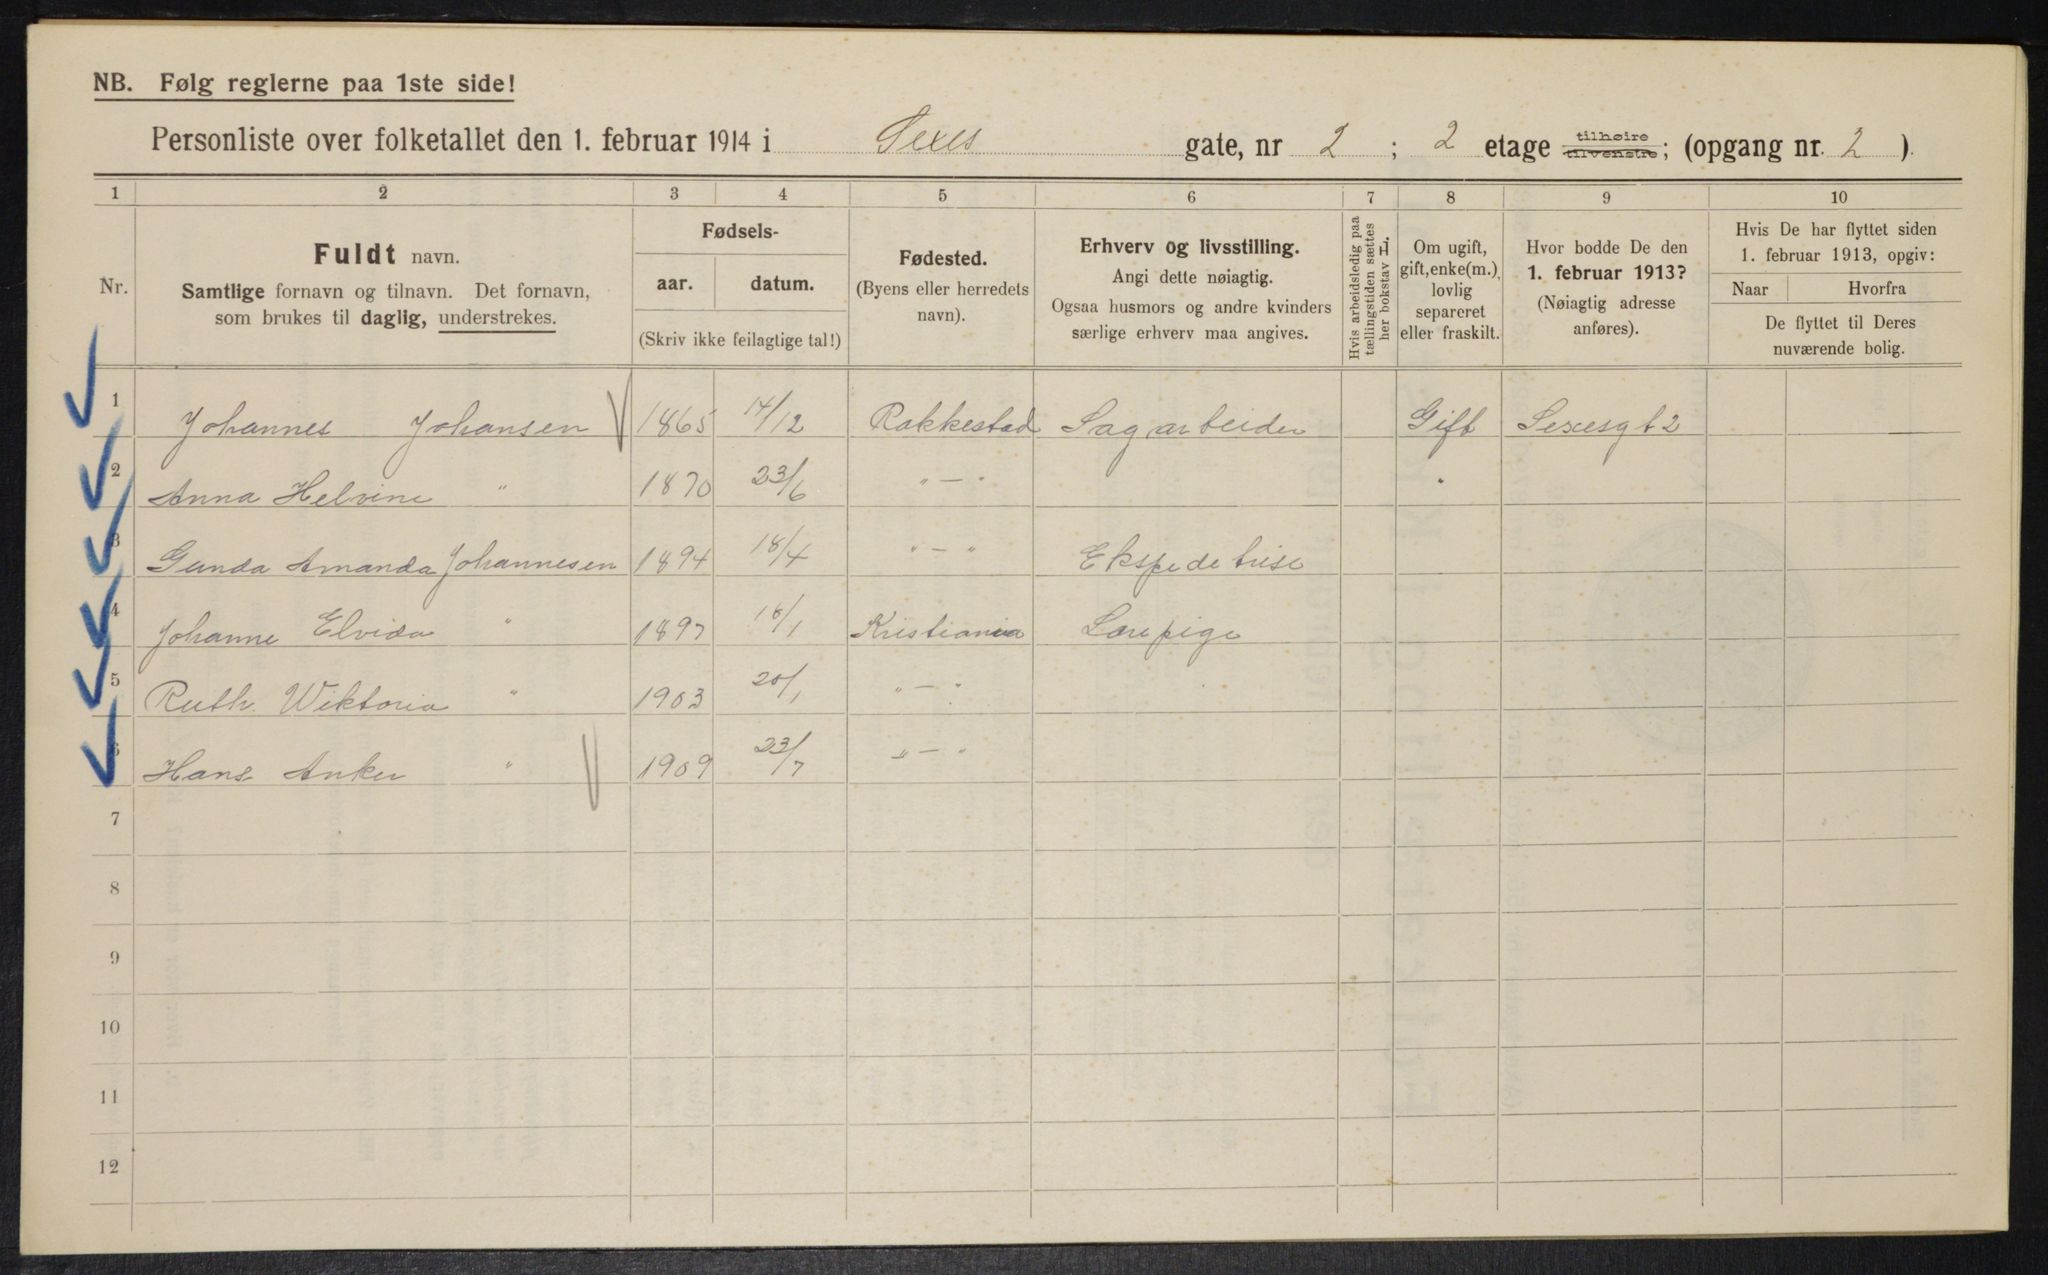 NB. Følg reglerne paa 1ste side!
Personliste over folketallet den 1. februar 1914 i Sexes gate, nr 2 ; 2 etage tilhøire tilvenstre; (opgang nr. 2 ).
1 2 3 4 5 6 7 8 9 10
Nr.
Fuldt navn.
Samtlige fornavn og tilnavn. Det fornavn,
som brukes til daglig, understrekes.
Fødsels-
aar. datum.
(Skriv ikke feilagtige tal!)
Fødested.
(Byens eller herredets
navn).
Erhverv og livsstilling.
Angi dette nøiagtig.
Ogsaa husmors og andre kvinders
særlige erhverv maa angives.
Hvis arbeidsledig paa
tællingstiden sættes
her bokstav L.
Om ugift,
gift, enke(m.),
lovlig
separeret
eller fraskilt.
Hvor bodde De den
1. februar 1913?
(Nøiagtig adresse
anføres).
Hvis De har flyttet siden
1. februar 1913, opgiv:
Naar Hvorfra
De flyttet til Deres
nuværende bolig.
1 Johannes Johansen 1865 14/12 Rakkestad Sagarbeider Gift Sexesgt 2
2 Anna Helvine " 1870 23/6 " — " "
3 Gunda Amanda Johannesen 1894 18/4 " — " Ekspeditrise
4 Johanne Elvida " 1897 18/1 Kristiania Lærepige
5 Ruth Wiktoria " 1903 20/1 " — "
6 Hans Anker " 1909 23/7 " — "
7
8
9
10
11
12